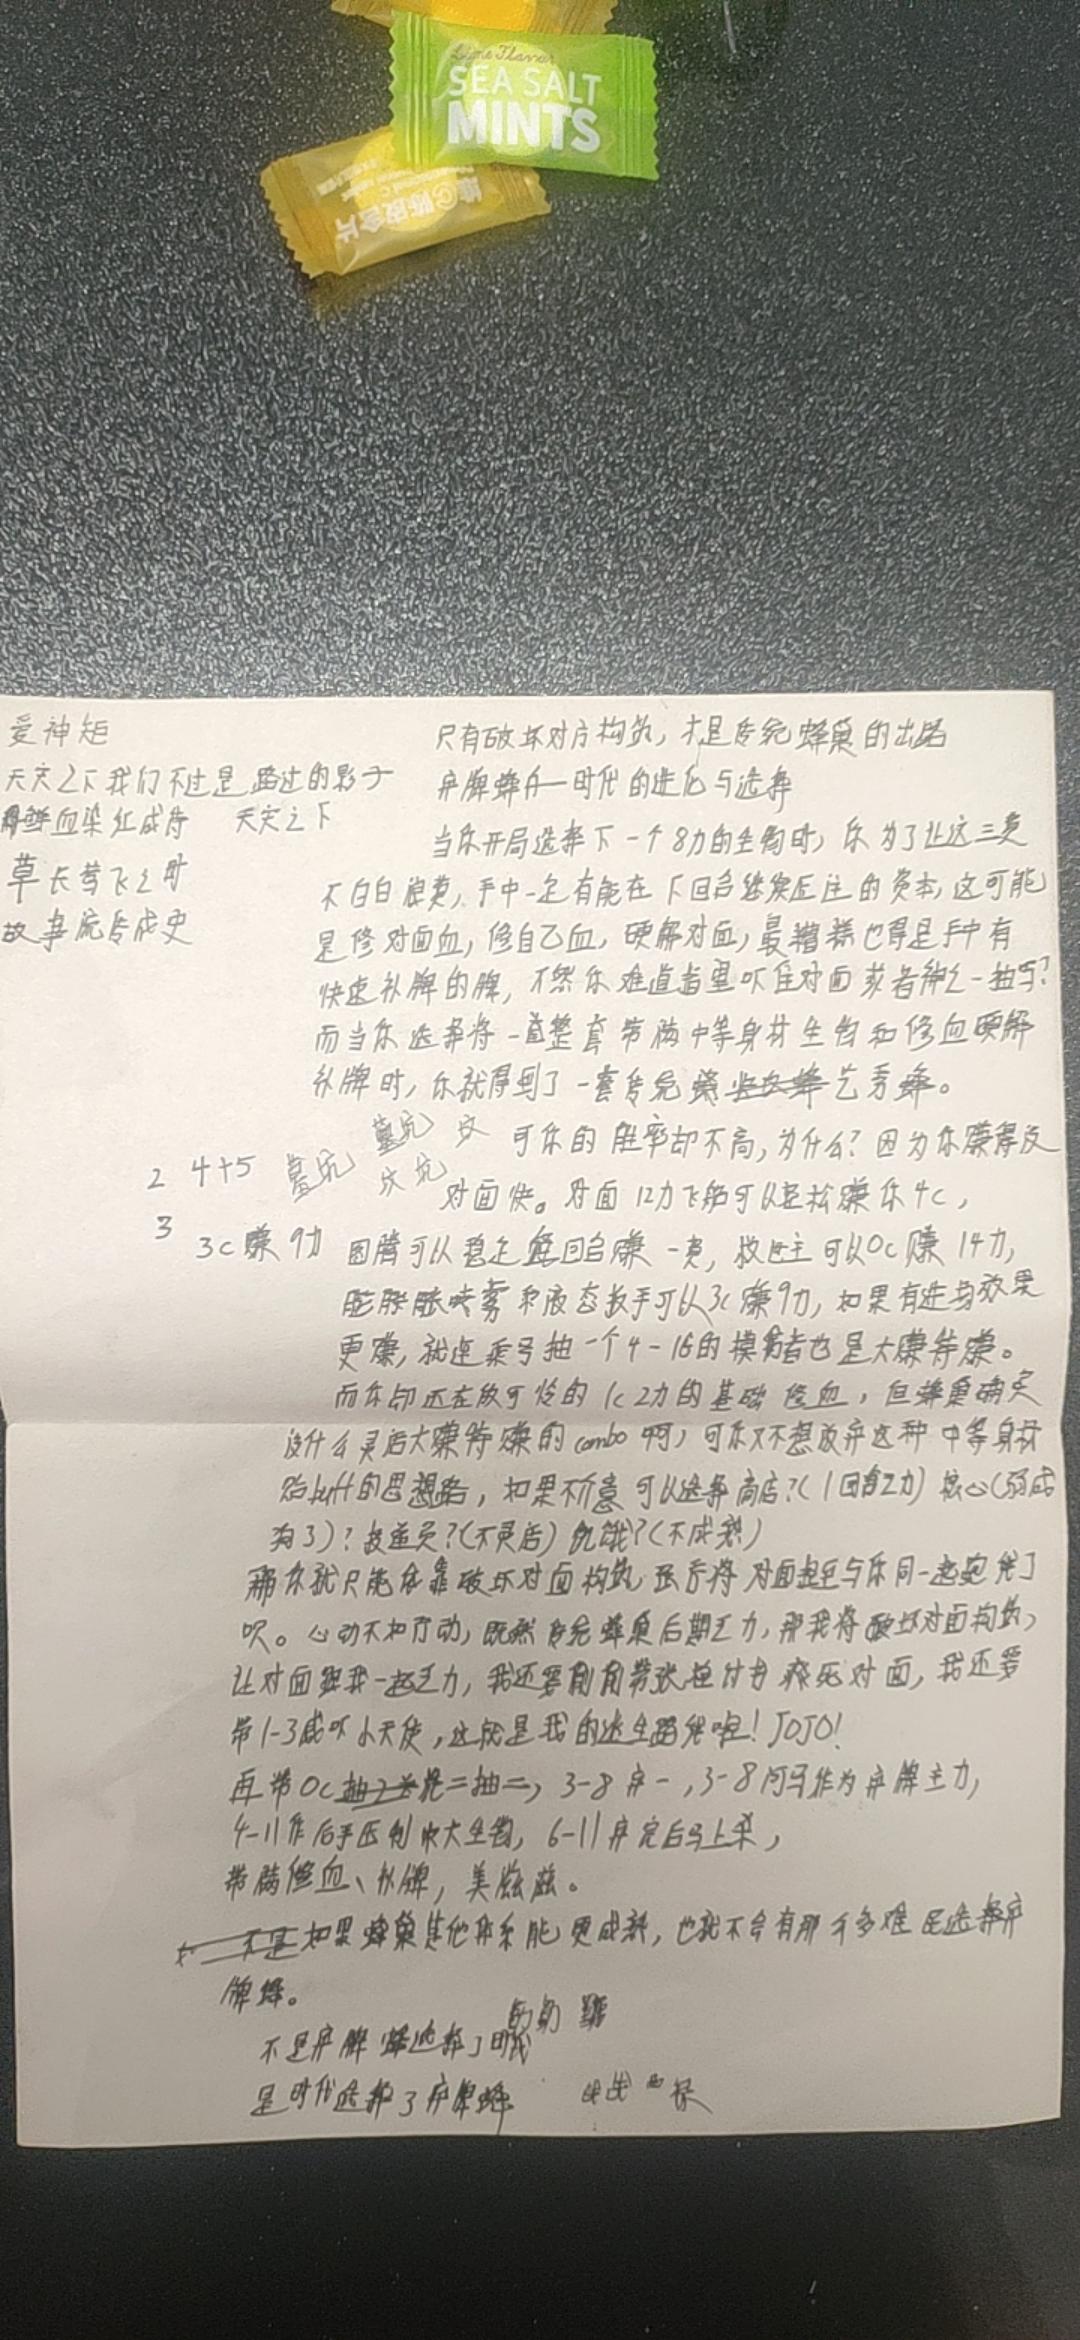 Lime Flavour
SEA SALT
MINTS
维C陈皮含片
爱神矩
天灾之下我们不过是路过的影子
鲜血染红成诗 天灾之下
草长莺飞之时
故事流传成史
只有破坏对方构筑，才是传统蜂巢的出路
弃牌蜂——时代的进化与选择
当你开局选择下一个8力的生物时，你为了让这三费
不白白浪费，手中一定有能在下回合继续压注的资本，这可能
是修对面血，修自己血，硬解对面，最糟糕也得是手中有
快速补牌的牌，不然你难道指望吓住对面或者神之一抽吗？
而当你选择将一首整套带满中等身材生物和修血硬解
补牌时，你就得到了一套传统艺秀蜂。
墓坑
2 4+5 墓坑
可你的胜率却不高，为什么？因为你赚得没
对面快。对面12力飞船可以轻松赚你4c，
3 3c赚9力
图腾可以稳定每回合赚一费，救世主可以0c赚14力，
膨胀喷雾和液态扳手可以3c赚9力，如果有进场效果
更赚，就连乘号抽一个4-16的模仿者也是大赚特赚。
而你却还在放可怜的1c2力的基础修血，但蜂巢确实
没什么灵活大赚特赚的combo啊，可你又不想放弃这种中等身材
贴buff的思想路，如果不介意可以选择商店？（1回合2力）核心（弱成
狗3）？投递员？（不灵活）饥饿？（不成熟）
那你就只能依靠破坏对面构筑，强行将对面拉到与你同一起跑线了
呗。心动不如行动，既然传统蜂巢后期乏力，那我将破坏对面构筑，
让对面跟我一起乏力，我还要削削劳张抽付费疼死对面，我还要
带1-3威吓小天使，这就是我的逃生路线哒！JOJO！
再带0c二抽二，3-8弃一，3-8阿马作为弃牌主力，
4-11作后手压制中大生物，6-11弃完后马上杀，
带满修血、补牌，美滋滋。
如果蜂巢其他体系能更成熟，也就不会有那么多难民选择弃
牌蜂。
不是弃牌蜂选择了时代
是时代选择了弃牌蜂